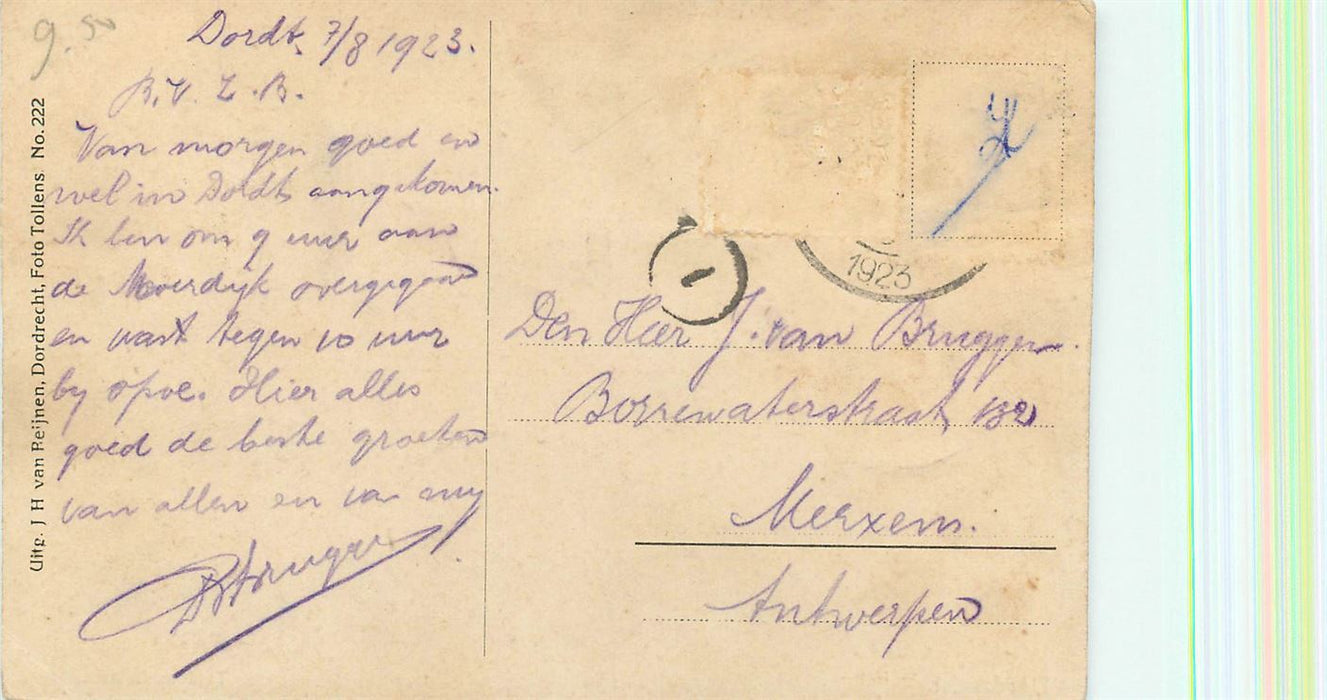 9.50
Dordt, 7/8 1923.
B.V.Z.B.
Van morgen goed en
wel in Dordt aangekomen.
Ik ben om 9 uur aan
de Moerdijk overgegaan
en was tegen 10 uur
by opoe. Hier alles
goed de beste groeten
van allen en van my
Uitg. J H van Reijnen, Dordrecht, Foto Tollens No. 222
1923
1
Den Heer J. van Bruggen.
Borrewaterstraat 132
Merxem.
Antwerpen